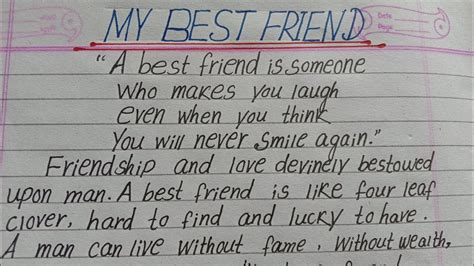 MY BEST FRIEND
"A best friend is someone
who makes you laugh
even when you think
You will never smile again."
Friendship and love devinely bestowed
upon man. A best friend is like four leaf
clover, hard to find and lucky to have.
A man can live without fame, without wealth,